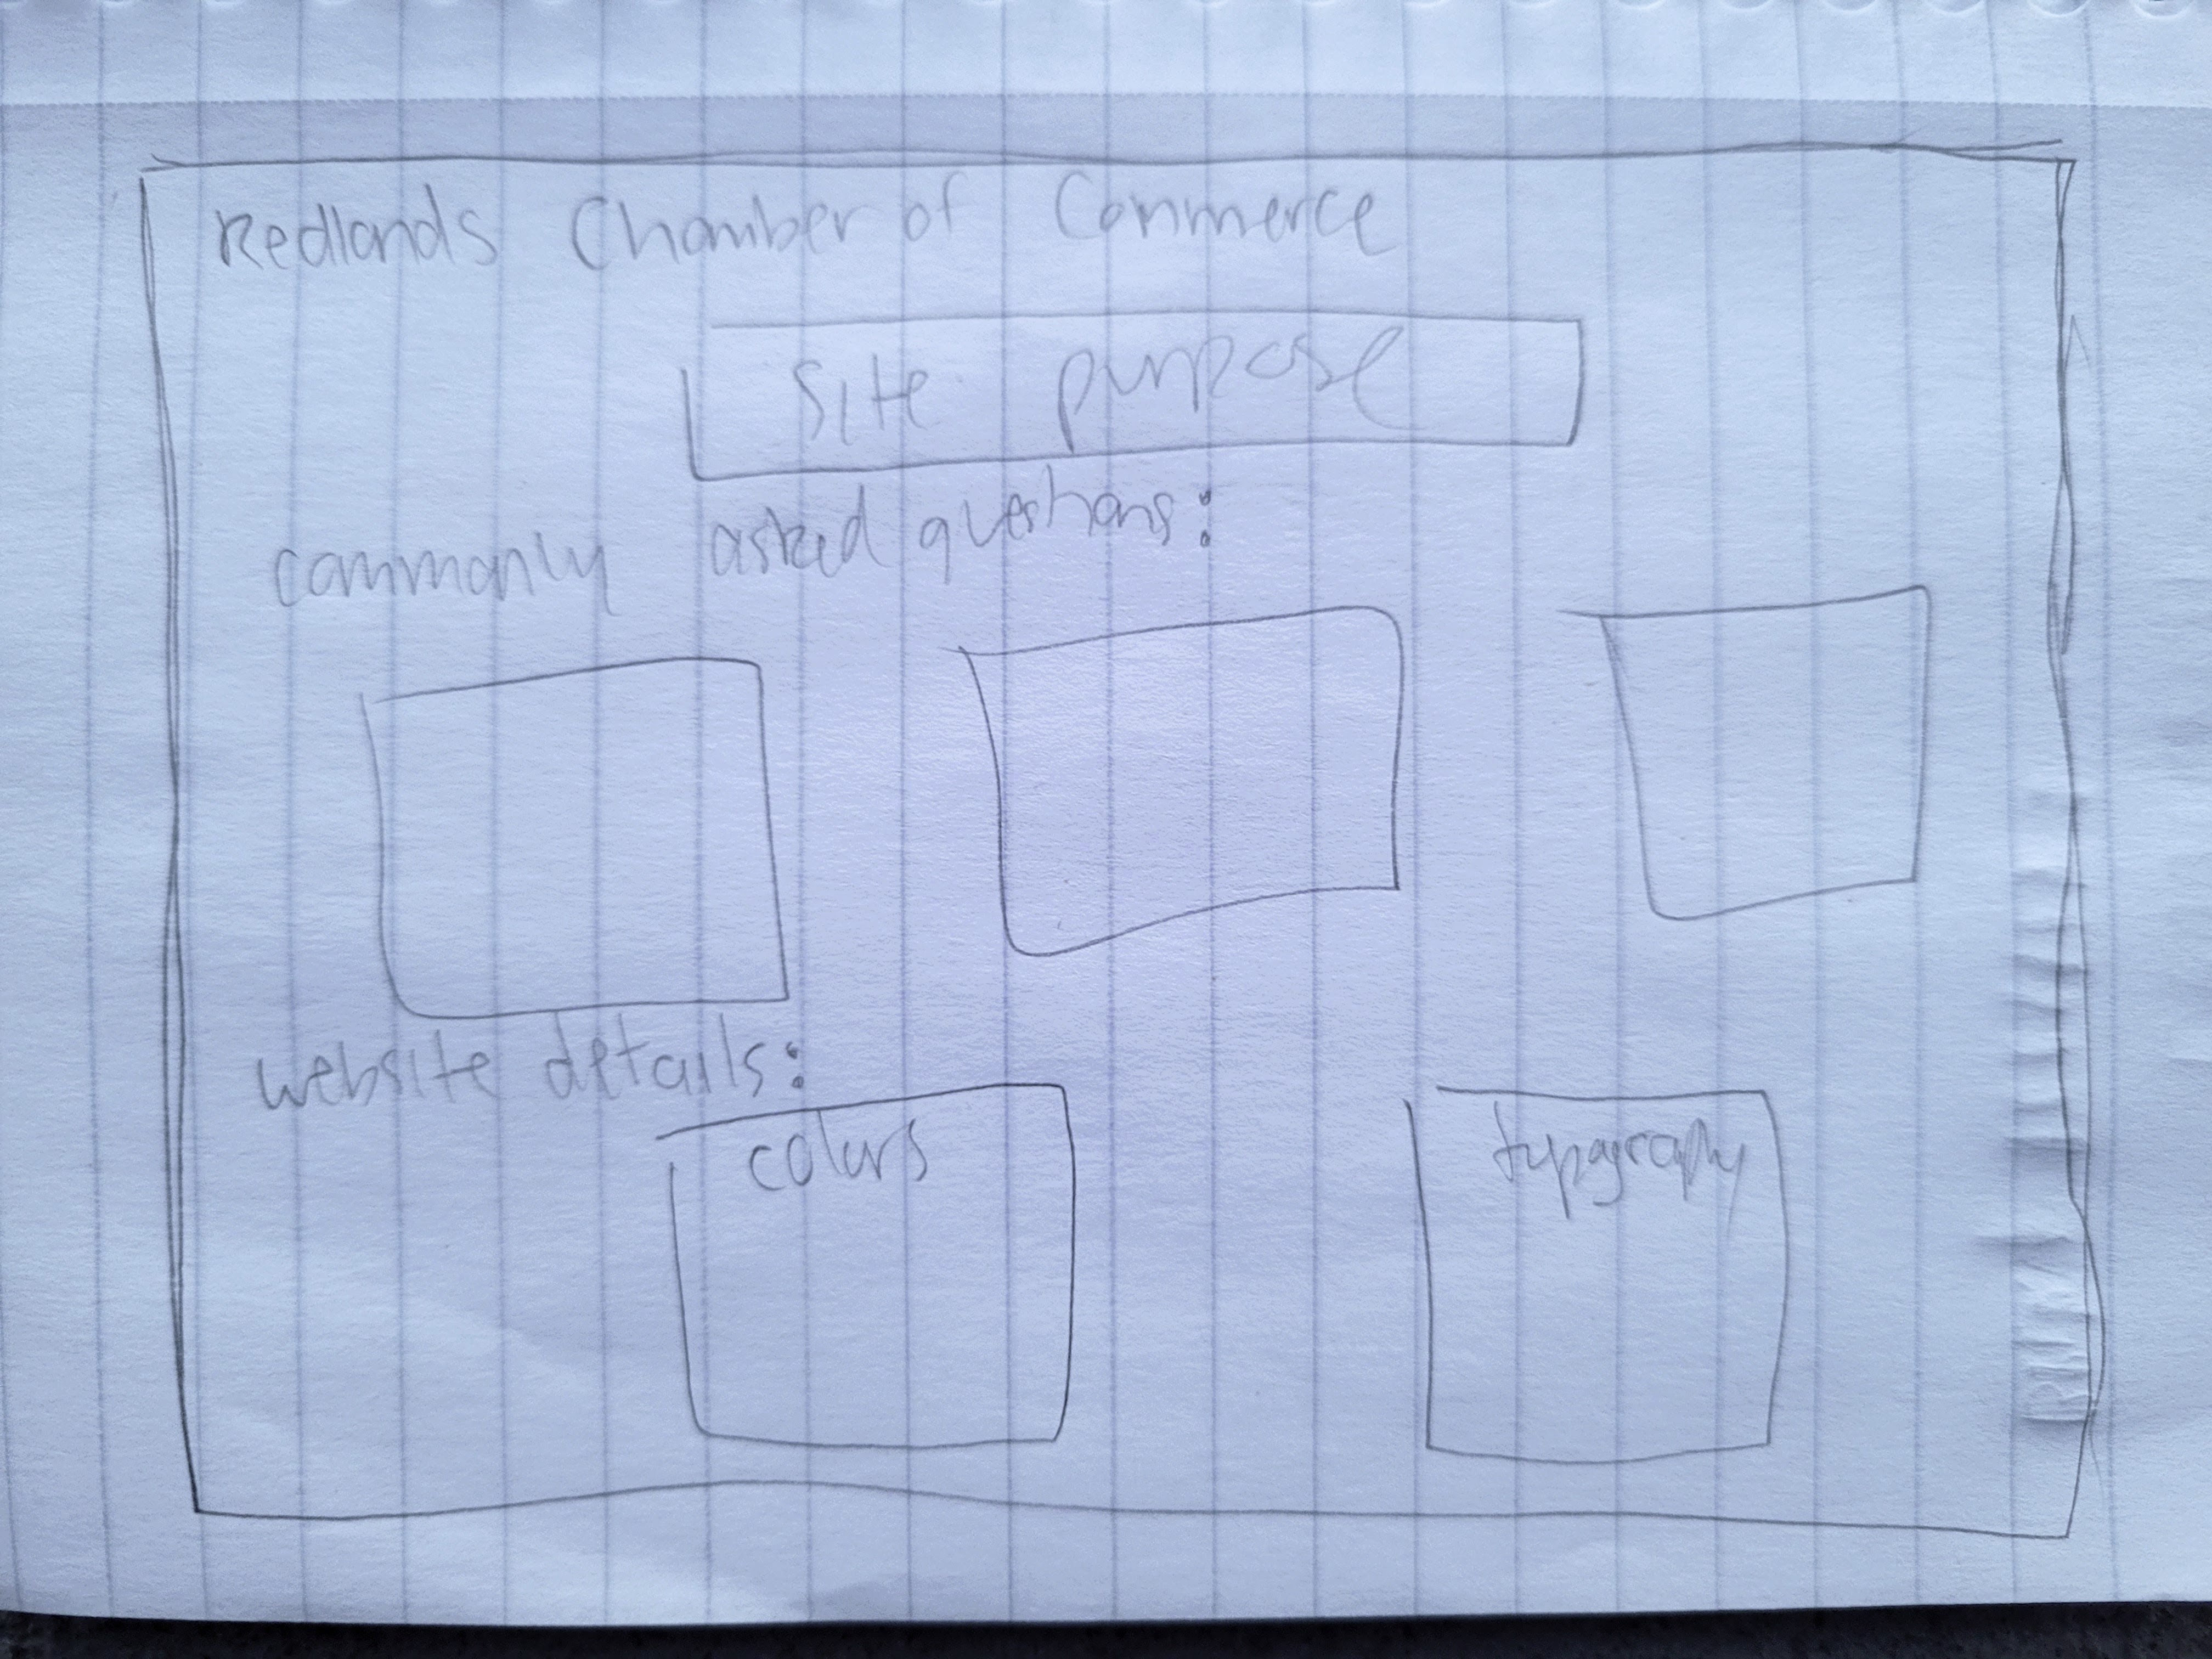 Redlands Chamber of Commerce
Site purpose
commonly asked questions:
website details:
colors
typography